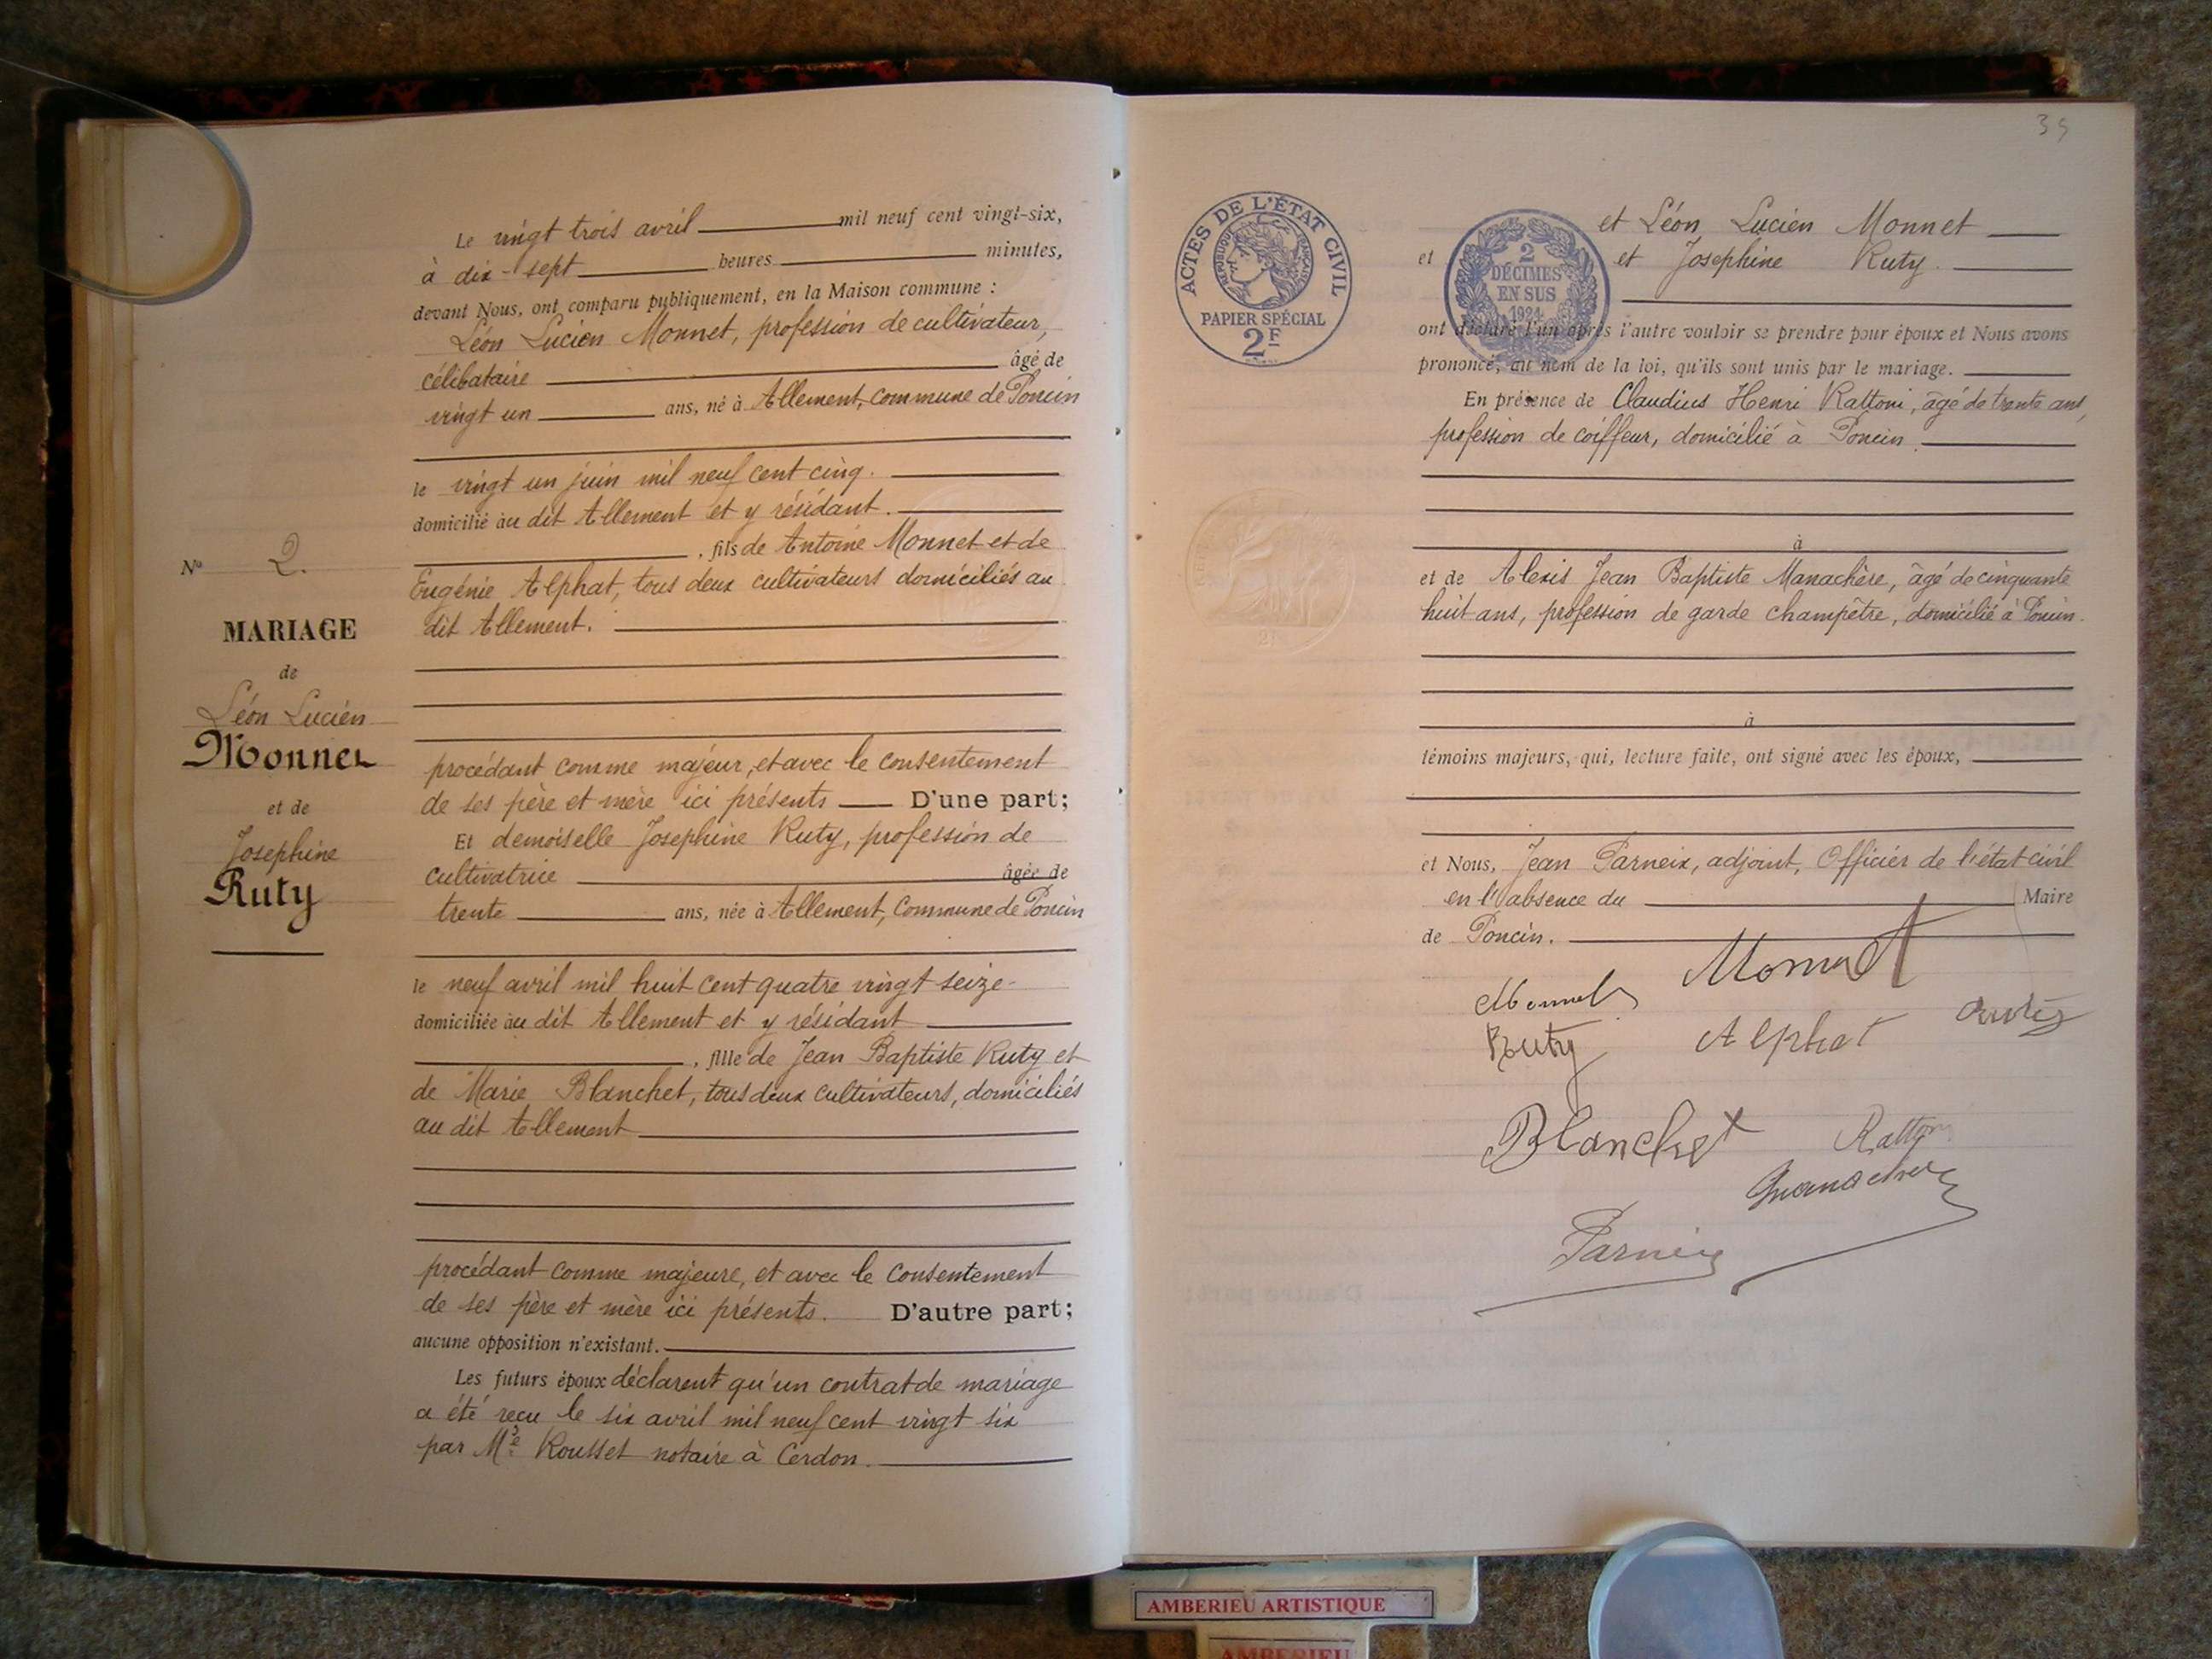 N° 2.
MARIAGE
de
Léon Lucien
Monnet
et de
Josephine
Ruty
Le vingt trois avril mil neuf cent vingt-six,
à dix-sept heures minutes,
devant Nous, ont comparu publiquement, en la Maison commune :
Léon Lucien Monnet, profession de cultivateur,
célibataire âgé de
vingt un ans, né à Allement, commune de Poncin
le vingt un juin mil neuf cent cinq.
domicilié au dit Allement et y résidant.
, fils de Antoine Monnet et de
Eugénie Alphat, tous deux cultivateurs domiciliés au
dit Allement.
procédant comme majeur, et avec le consentement
de ses père et mère ici présents D'une part;
Et demoiselle Josephine Ruty, profession de
cultivatrice âgée de
trente ans, née à Allement, Commune de Poncin
le neuf avril mil huit cent quatre vingt seize
domiciliée au dit Allement et y résidant
, fille de Jean Baptiste Ruty et
de Marie Blanchet, tous deux cultivateurs, domiciliés
au dit Allement
procédant comme majeure, et avec le consentement
de ses père et mère ici présents. D'autre part;
aucune opposition n'existant.
Les futurs époux déclarent qu'un contrat de mariage
a été reçu le six avril mil neuf cent vingt six
par Me Rousset notaire à Cerdon.
39
ACTES DE L'ÉTAT CIVIL
RÉPUBLIQUE FRANÇAISE
PAPIER SPÉCIAL
2F
2
DÉCIMES
EN SUS
1924
et Léon Lucien Monnet
et et Josephine Ruty.
ont déclaré l'un après l'autre vouloir se prendre pour époux et Nous avons
prononcé, au nom de la loi, qu'ils sont unis par le mariage.
En présence de Claudius Henri Rattoni, âgé de trente ans,
profession de coiffeur, domicilié à Poncin
à
et de Alexis Jean Baptiste Manachère, âgé de cinquante
huit ans, profession de garde champêtre, domicilié à Poncin.
à
témoins majeurs, qui, lecture faite, ont signé avec les époux,
et Nous, Jean Parneix, adjoint, Officier de l'état civil
en l'absence du Maire
de Poncin.
Monnet
Monnet
Ruty
Alphat
Ruty
Blanchet
Rattoni
Manachère
Parneix
AMBERIEU ARTISTIQUE
AMBERIEU